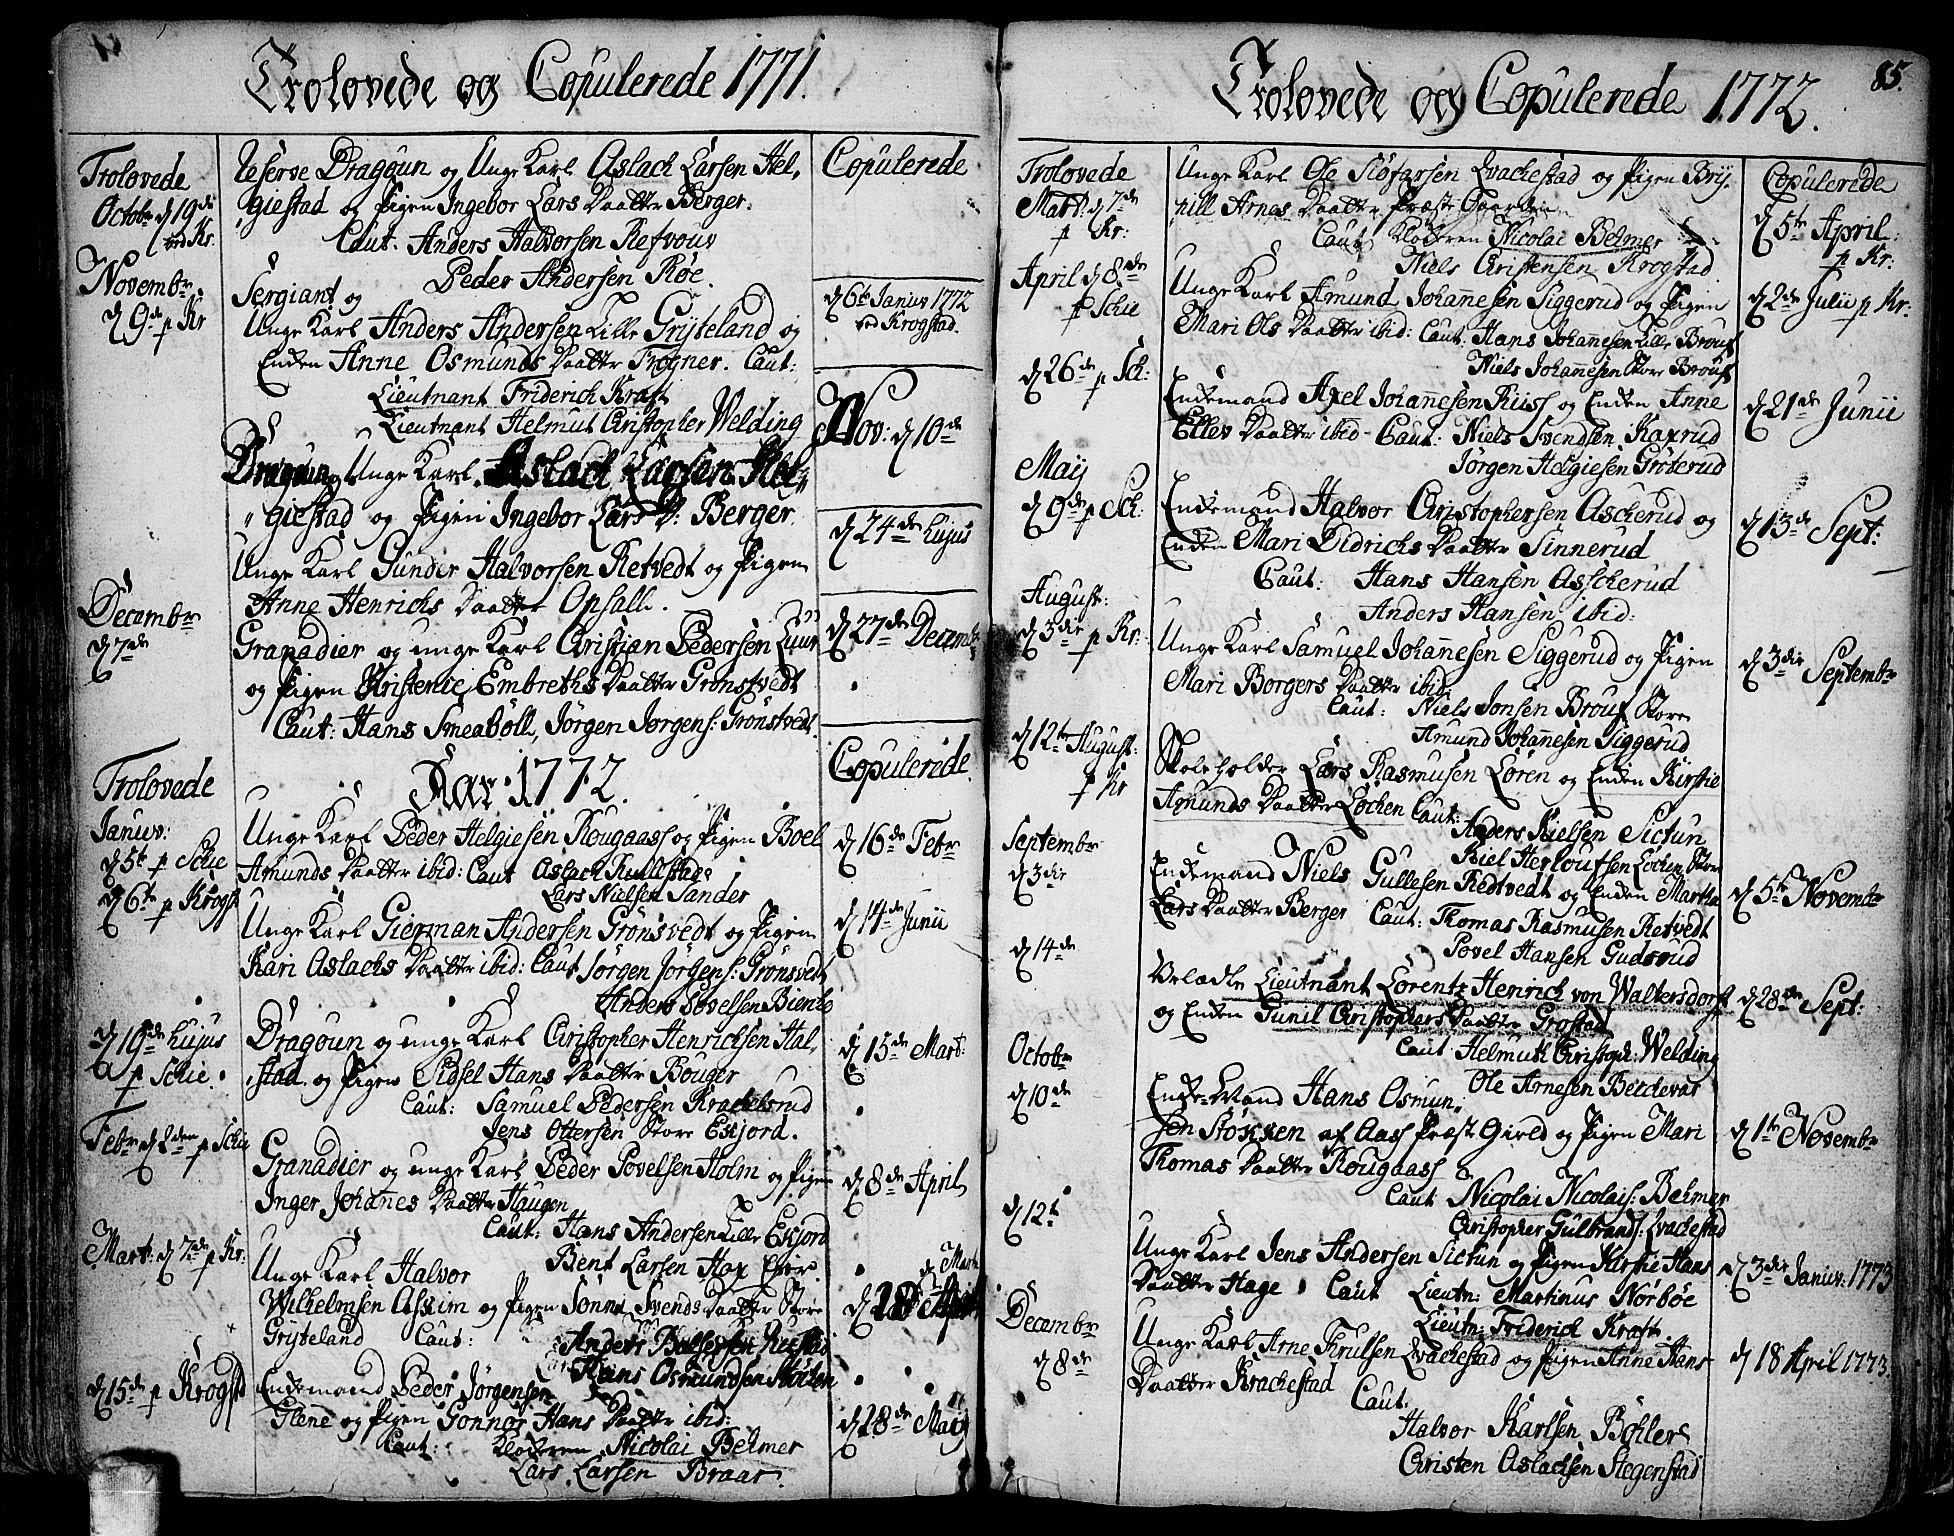 Trolovede og Copulerede 1771.
Trolovede
Octobr d 19de
ved Kr.
Reserve Dragoun og Unge Karl Aslach Larsen Hel,
giestad og Pigen Ingebor Lars Daatter Berger.
Caut. Anders Halvorsen Refvouv
Peder Andersen Röe.
Copulerede
Novembr.
d 9de p Kr
Sergiant og
Unge Karl Anders Andersen Lille Gryteland og
Enken Anne Osmunds Daatter Frogner. Caut:
Lieutnant Friderich Kraft
Lieutnant Helmut Christopher Welding
d 6te Janius 1772
ved Krogstad.
Dragoun, Unge Karl. Aslach Larsen Hel,,
,,giestad og Pigen Ingebor Lars D: Berger.
Nov: d 10de
Unge Karl Gunder Halvorsen Retvedt og Pigen
Anne Henrichs Daatter Opsall.
d 24de hujus
Decembr
d 7de
Granadier og unge Karl Christian Pedersen Luur
og Pigen Kristenie Embreths Daatter Gronstvedt
Caut: Hans Smeaböll, Jörgen Jörgens: Grönstvedt.
d 27de Decembr
Trolovede
Aar 1772.
Copulerede.
Januv:
d 5te p Schie
Unge Karl Peder Helgiesen Rougaass og Pigen Boel
Amunds Daatter ibid: Caut Aslach Rullestad
Lars Nielsen Sander
d 16de Febr
d 6te p Krogst
Unge Karl Gierman Andersen Grönsvedt og Pigen
Kari Aslachs Daatter ibid: Caut Jörgen Jörgens: Grönsvedt
Anders Povelsen Bienke
d 14de Junii
d 19de hujus
p Schie.
Dragoun og unge Karl Christopher Henrichsen Hal,
,stad og Pigen Sidsel Hans Daatter Bouger
Caut: Samuel Pedersen Krachelsrud
Jens Ottersen Store Eskjord.
d 15de Mart:
Febr d 2den p Schie
Granadier og unge Karl Peder Povelsen Holm og Pigen
Inger Johanes Daatter Haugen
Caut: Hans Andersen Lille Eskjord
Bent Larsen Hax Eier.
d 8de April
Mart: d 7de p Kr:
Unge Karl Halvor
Wilhelmsen Askim og Pigen Jönni Svends Daatter Store
Gryteland Caut:
Anders Balsersen
Hans Osmundsen Stökken
d Mart
d 28 April
d 15de p Krogst
Enkemand Peder Jörgensen
Glene og Pigen Gonnor Hans Daatter ibid:
Caut: Klokeren Nicolai Behmer
Lars Larsen Braar
d 28de Maij
Trolovede og Copulerede 1772.
85.
Trolovede
Mart: d 7de
p Kr:
Unge Karl Ole Siöfarsen Qvachestad og Pigen Bry,
,nill Arnes Daatter Præste Gaarden
Caut Klokeren Nicolai Behmer
Niels Christensen Krogstad
Copulerede
d 5te April:
p Kr:
April d 8de
p Schie
Unge Karl Amund Johannesen Siggerud og Pigen
Mari Ols Daatter ibid: Caut. Hans Johannesen Lille Brouf
Niels Johannesen Store Brouf
d 2de Julii p Kr:
d 26de p Sch:
Enkemand Axel Johannesen Riiss og Enken Anne
Ellev Daatter ibid - Caut: Niels Svendsen Kaxrud
Jørgen Helgiesen Gröterud
d 21de Junii
Maij
d 9de p Sch:
Enkemand Halvor Christophersen Ascherud og
Enken Mari Didrichs Daatter Sinnerud
Caut: Hans Hansen Asscherud
Anders Hansen ibid:
d 13de Sept:
August:
d 3die p Kr:
Unge Karl Samuel Johannesen Siggerud og Pigen
Mari Borgers Daatter ibid.
Caut: Niels Jonsen Brouf Store
Amund Johannesen Siggerud
d 3die Septembr
d 12te August:
p Kr
Skoleholder Lars Rasmusen Loren og Enken Kirstie
Amunds Daatter Lochen Caut:
Anders Nielsen Sictun
Kiel Herloufsen Lochen Store
Septembr
d 3die
Enkemand Niels Gullesen Redtvedt og Enken Martha
Lars Daatter Berger Caut: Thomas Rasmusen Retvedt
Povel Hansen Gudsvud
d 5te Novembr
d 14de
Velædle Lieutnant Lorentz Henrich von Waltersdorff
og Enken Gunil Christophers Daatter Grostad
Caut Helmuth Christoph: Welding
Ole Arnesen Berdevar
d 28de Sept:
Octobr
d 10de
Enke-Mand Hans Osmun,
sen Stökken af Aass Præst Gield og Pigen Mari
Thomas Daatter Rougaass
Caut Nicolai Nicolais: Behmer
Christopher Gulbrands: Qvachestad
d 1te Novembr
d 12te
Unge Karl Jens Andersen Sictun og Pigen Kirstie Hans
Daatter Hage Caut Lieutn: Martinus Nörböe
Lieutn: Friderich Kraft.
d 3die Januv: 1773
Decembr
d 8de
Unge Karl Arne Thrulsen Qvachestad og Pigen Anne Hans
Daatter Krachestad
Caut:
Halvor Karlsen Böhler
Christen Aslachsen Stegenstad
d 18 April 1773.